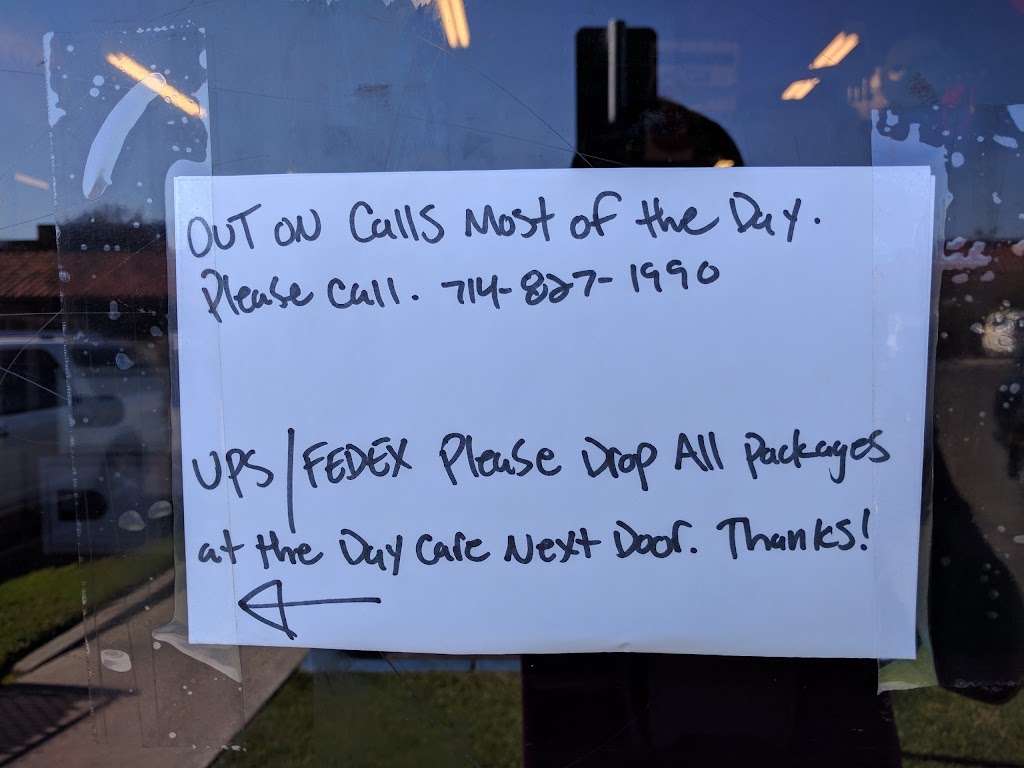 OUT ON Calls Most of the Day.
Please Call. 714-827-1990
UPS/FEDEX Please Drop All Packages
at the Day Care Next Door. Thanks!